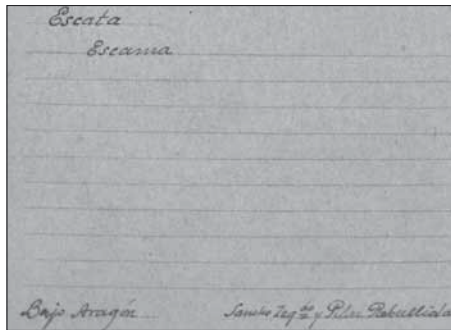 Escata
Escama
Bajo Aragón
Sancho Izqdo y Pilar Rabullida